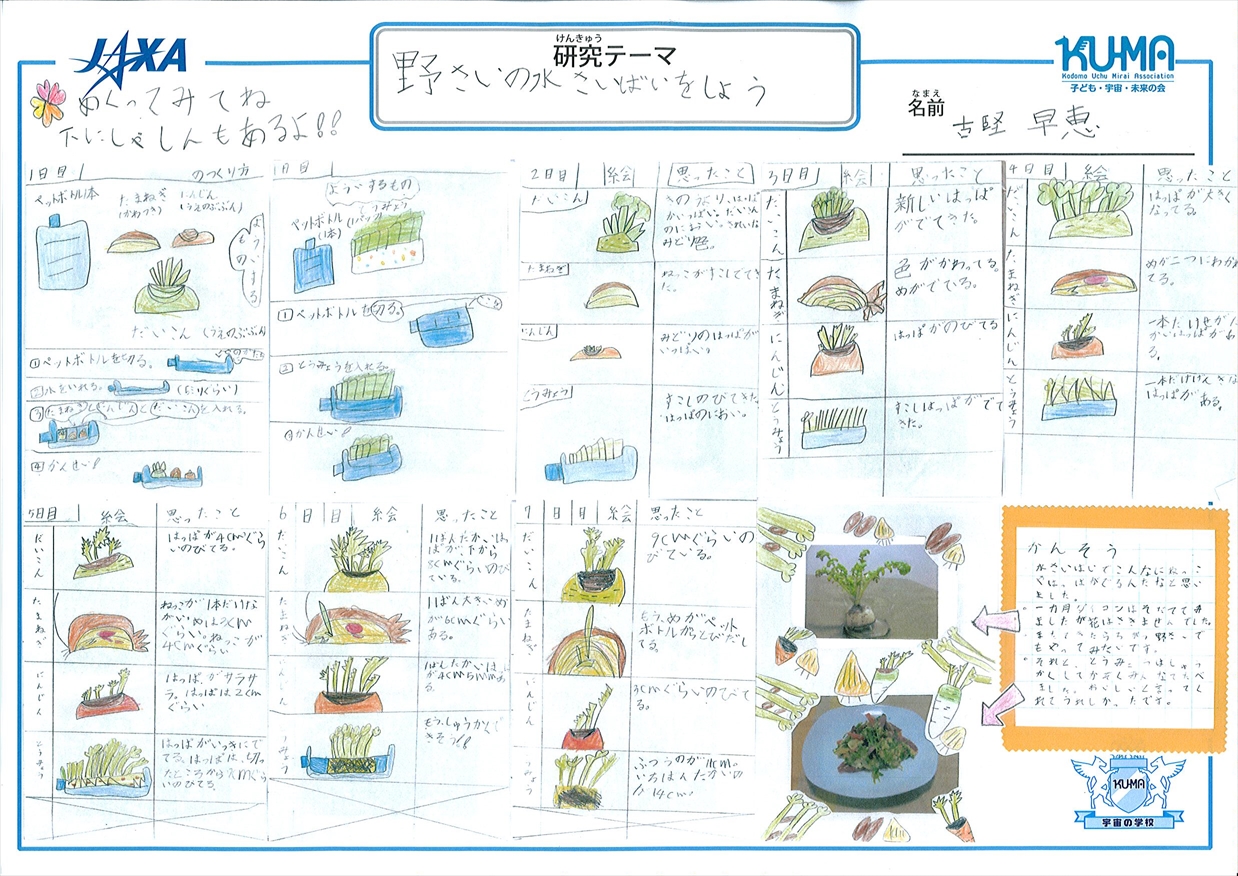 JAXA
けんきゅう
研究テーマ
野さいの水さいばいをしよう
KU-MA
Kodomo Uchu Mirai Association
子ども・宇宙・未来の会
なまえ
名前
古堅 早恵
めくってみてね
下にしゃしんもあるよ!!
1日目 のつくり方
ペットボトル1本
たまねぎ
(かわつき)
にんじん
(うえのぶぶん)
よういするもの
だいこん (うえのぶぶん)
①ペットボトルを切る。
②水をいれる。
③たまねぎとにんじんとだいこんを入れる。
④かんせい!
1日目
よういするもの
ペットボトル
(1本)
とうみょう
(1パック)
①ペットボトルを切る。
②とうみょうを入れる。
③かんせい!
2日目 絵 思ったこと
だいこん
みどり色。
たまねぎ
ねっこがすこしでてき
た。
にんじん
みどりのはっぱが
いっぱい。
とうみょう
すこしのびてきた。
はっぱのにおい。
3日目 絵 思ったこと
だいこん
新しいはっぱ
がでてきた。
たまねぎ
色がかわってる。
めがでている。
にんじん
はっぱがのびてる
とうみょう
すこしはっぱがでて
きた。
4日目 絵 思ったこと
だいこん
はっぱが大きく
なってる。
たまねぎ
めが二つにわかれ
てる。
にんじん
一本だけ
る。
とうみょう
一本だけ
はっぱがある。
5日目 絵 思ったこと
だいこん
はっぱが4cmぐら
いのびてる。
たまねぎ
ねっこが1本だけな
がい。めは2cm
ぐらい。ねっこが
4cmぐらい。
にんじん
はっぱがサラサ
ラ。はっぱは2cm
ぐらい
とうみょう
はっぱがいっきにで
てる。はっぱは、切っ
たところから
いのびてる。
6日目 絵 思ったこと
だいこん
1ばんたかいはっ
ぱが、下から
8cmぐらいのび
ている。
たまねぎ
1ばん大きいめ
が6cmぐらい
ある。
にんじん
とうみょう
もう、しゅうかくで
きそう!!
7日目 絵 思ったこと
だいこん
9cmぐらいの
びている。
たまねぎ
もう、めがペット
ボトルからとびだし
てる。
にんじん
3cmぐらいのびて
る。
とうみょう
ふつうのが11cm。
いちばんたかいの
が14cm。
かんそう
水さいばいでこんなにねっこ
やはっぱがでるんだなと思い
ました。
一カ月ダイコンはそだててみ
ましたが花はさきませんでした。
またちがう野さいで
もやってみたいです。
それと、とうみょうはしゅう
かくしてかぞくみんなでたべ
ました。おいしいと言ってく
れてうれしかったです。
KU-MA
宇宙の学校